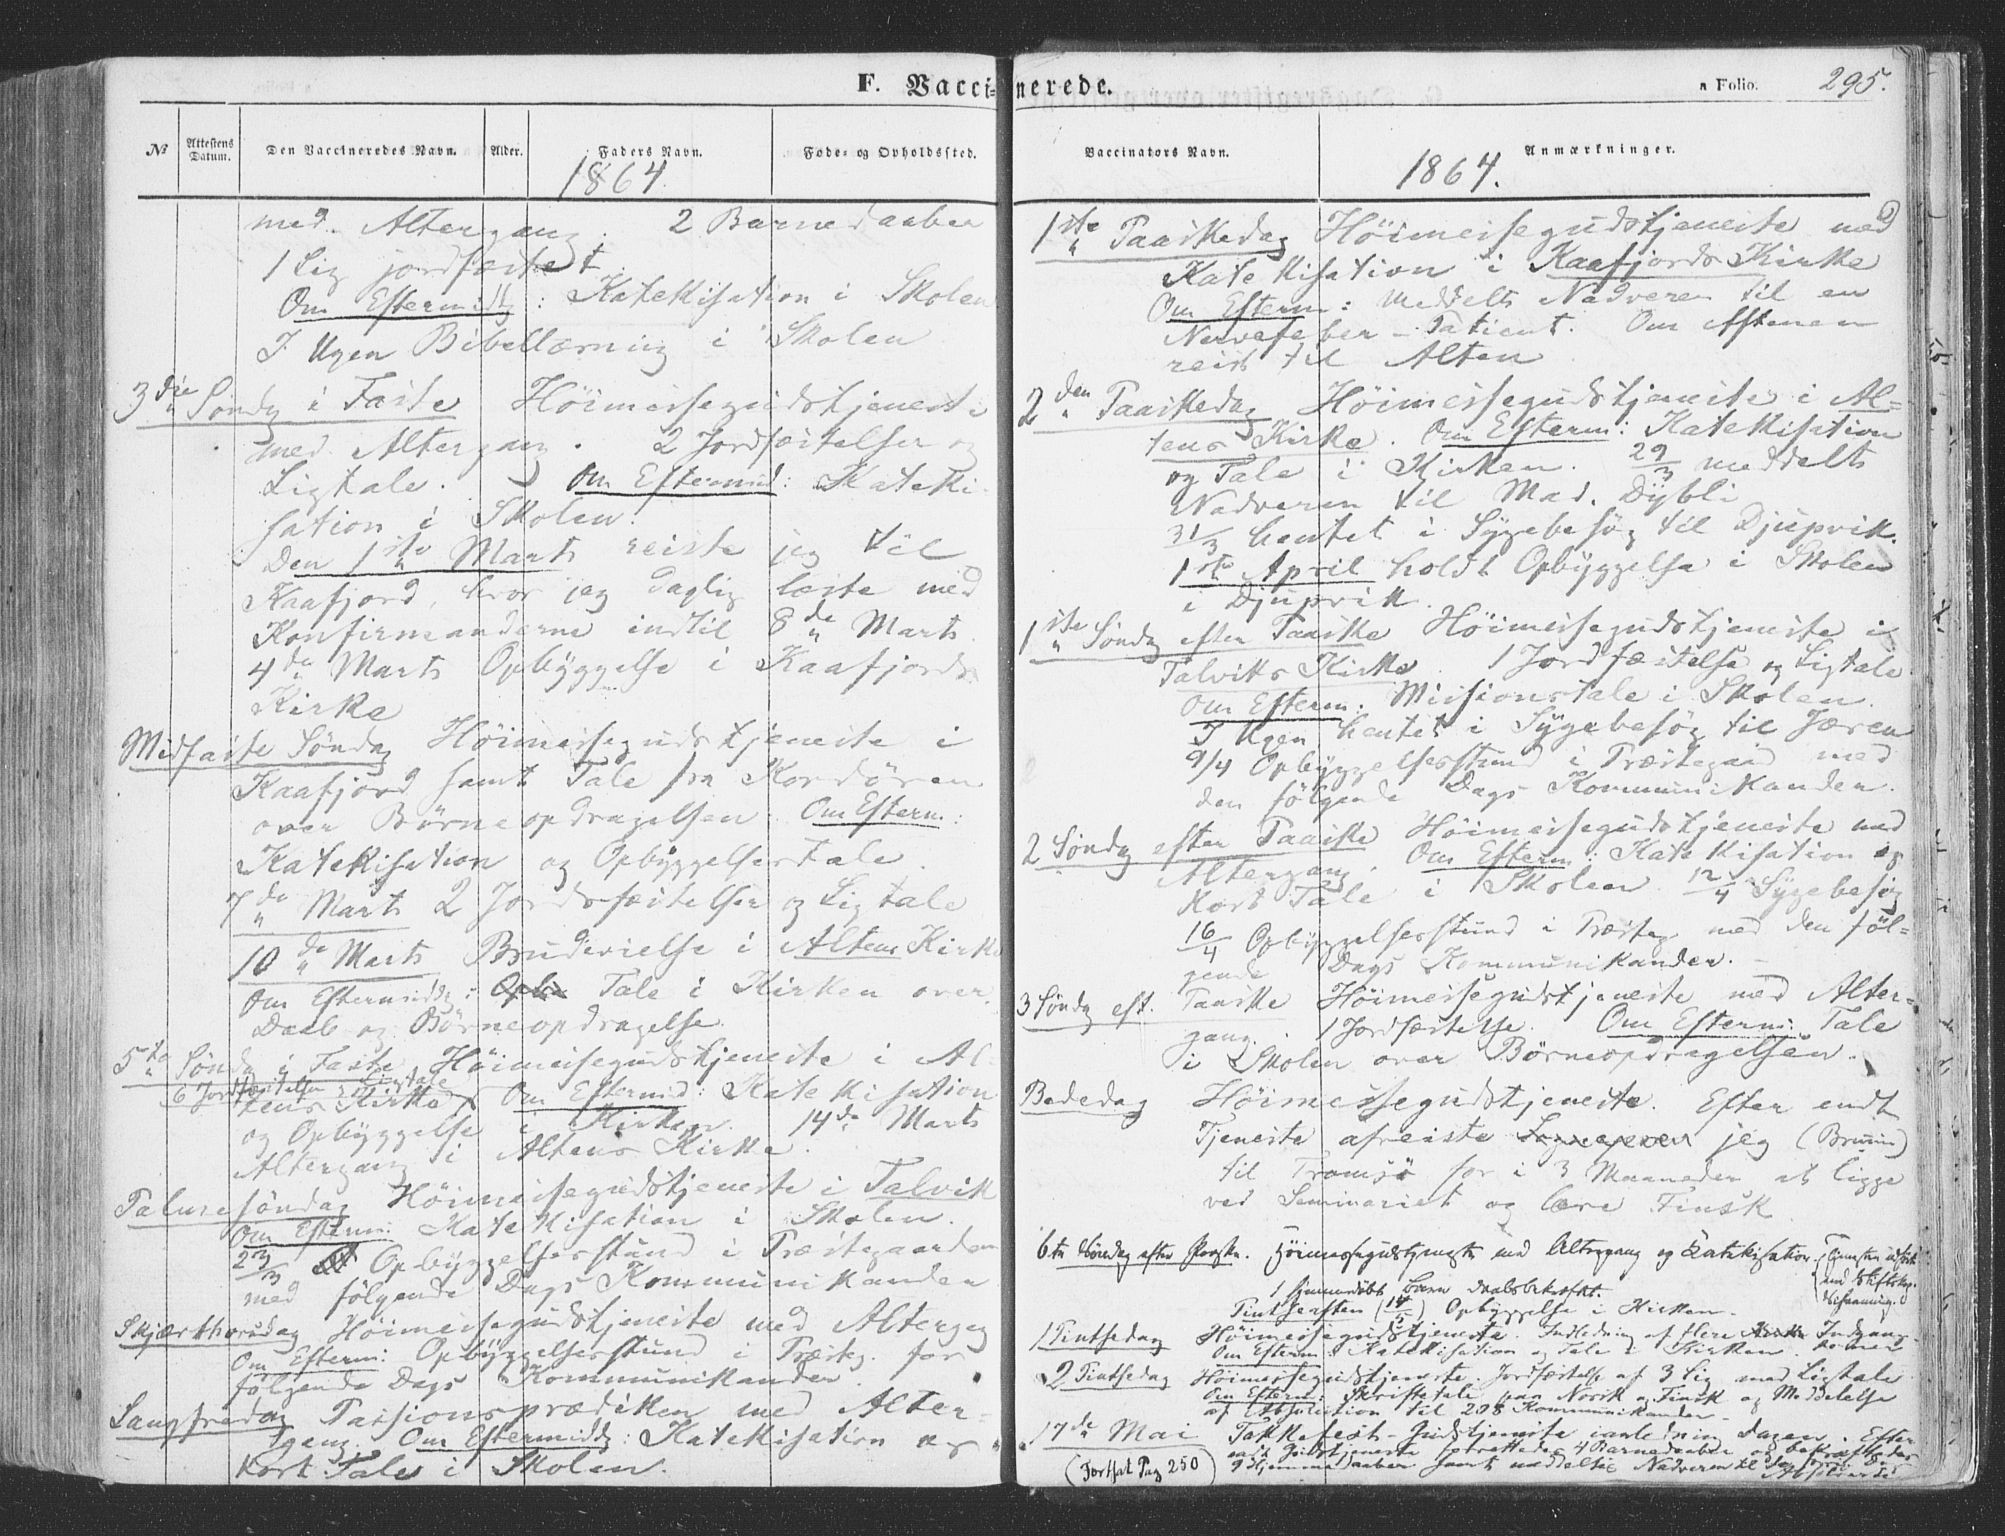 F. Vaccinerede.
a Folio. 295.
№ Attestens Datum. Den Vaccineredes Navn. Alder. Faders Navn. Føde- og Opholdssted. Vaccinators Navn. Anmærkninger.
1864. 1864.
med Altergang. 2 Barnedaaber
1 Lig jordfæstet
Om Eftermidg: Katekisation i Skolen
I Ugen Bibellæsning i Skolen
3die Søndg i Faste Höimessegudstjeneste
med Altergang. 2 Jordfæstelser og
Ligtale. Om Eftermid: Kateki-
sation i Skolen.
Den 1ste Marts reiste jeg til
Kaafjord, hvor jeg daglig læste med
Konfirmanderne indtil 8de Marts
4de Marts Opbyggelse i Kaafjords
Kirke
Midfaste Søndag Höimessegudstjeneste i
Kaafjord samt Tale fra Kordören
over Börneopdragelsen Om Efterm.:
Katekisation og Opbyggelsestale.
7de Marts 2 Jordsfæstelser og Ligtale
10de Marts Brudevielse i Altens Kirke
Om Eftermiddg: Tale i Kirken over
Daab og Börneopdragelse.
5te Søndag i Faste Höimessegudstjeneste i Al-
6 Jordfæstelser & Ligtale
tens Kirke Om Eftermid: Katekisation
og Opbyggelse i Kirken. 14de Marts
Altergang i Altens Kirke.
Palmesöndag Höimessegudstjeneste i Talvik
Om Efterm: Katekisation i Skolen.
23/3 Opbyggelsesstund i Præstegaarden
med følgende Dags Kommunikander
Skjærthorsdag Höimessegudstjeneste med Altergg
Om Efterm: Opbyggelsesstund i Præstg. for
følgende Dags Kommunikander.
Langfredag Passionsprædiken med Alter-
gang. Om Eftermiddg: Katekisation og
kort Tale i Skolen.
1ste Paaskedag Höimessegudstjeneste med
Katekisation i Kaafjords Kirke
Om Efterm: meddelts Nadveren til en
Nervefeber-Patient. Om Aftenen
reist til Alten
2den Paaskedag Höimessegudstjeneste i Al-
tens Kirke. Om Efterm: Katekisation
og Tale i Kirken. 29/3 meddelts
Nadveren til Mad. Dybli
31/3 hentet i Sygebesög til Djupvik.
1ste April holdt Opbyggelse i Skolen
i Djupvik.
1ste Søndg efter Paaske Höimessegudstjeneste i
Talviks Kirke. 1 Jordfæstelse og Ligtale
Om Efterm: Missionstale i Skolen.
I Ugen hentet i Sygebesög til Jæren
9/4 Opbyggelsesstund i Præstegaard med
den følgende Dags Kommunikanden.
2 Søndg efter Paaske Höimessegudstjeneste med
Altergang. Om Efterm: Katekisation og
kort Tale i Skolen 12/4 Sygebesög
16/4 Opbyggelsesstund i Præsteg med den föl-
gende Dags Kommunikanden. -
3 Søndg eft. Paaske Höimessegudstjeneste med Alter-
gang. 1 Jordfæstelse. Om Efterm: Tale
i Skolen over Börneopdragelsen.
Bededag Höimessegudstjeneste. Efter endt
Tjeneste afreiste jeg (Bruun)
til Tromsö for i 3 Maaneder at ligge
ved Seminariet og lære Finsk
6te Søndag efter Paaske. Höimessegudstjeneste med Altergang og Katekisation.
1 hjemmedöbt Barn Daabsbekræftet.
Pintseaften (14/5) Opbyggelse i Kirken.
1 Pintsedag Höimessegudstjeneste. Indledning af flere Indgangs-
Om Efterm: Katekisation og Tale i Kirken.
2 Pintsedag Höimessegudstjeneste. Jordfæstelse af 3 Lig med Ligtale
Om Efterm: Skriftetale paa Norsk og Finsk og Meddelelse
af Absolution til 208 Kommunikander
17de Mai Takkefest-Gudstjeneste i Dagen. Efter
endt Gudstjeneste forrettedes 4 Barnedaaber og bekræftedes
9 Hjemmedaaber samt meddeltes Nadveren til
(Fortsat Pag 250)